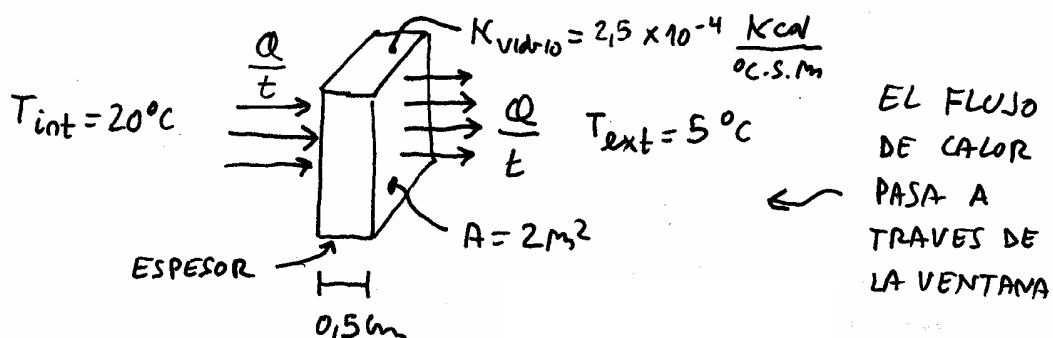 K vidrio = 2,5 × 10⁻⁴ Kcal / °C.S.m
Q/t
T int = 20°C
Q/t
T ext = 5°C
EL FLUJO
DE CALOR
PASA A
TRAVES DE
LA VENTANA
A = 2m²
ESPESOR
0,5cm